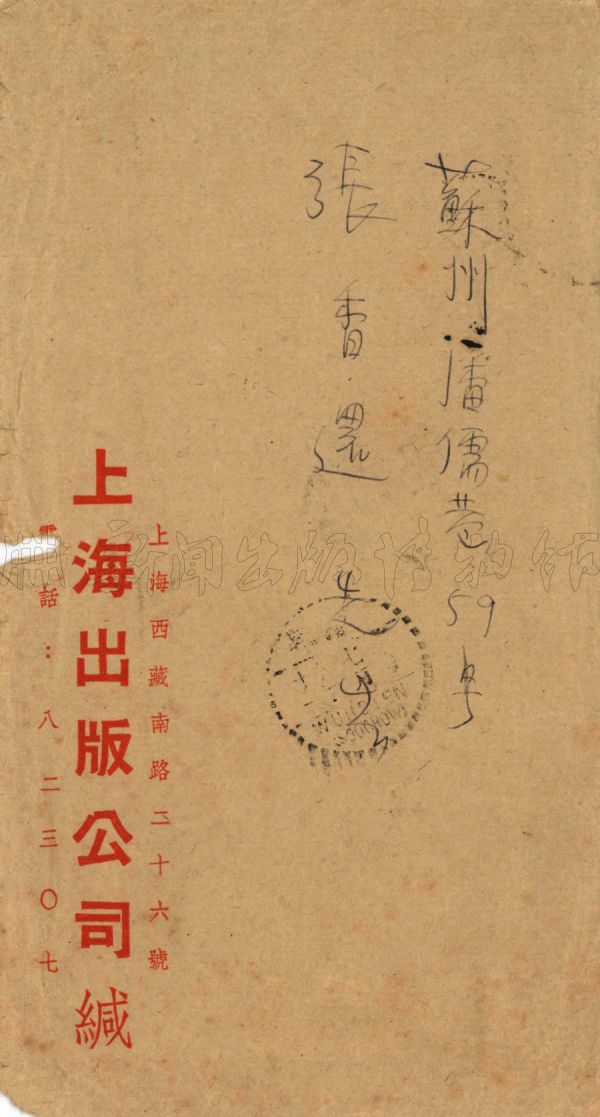 蘇州潘儒巷59号
張香還先生
上海西藏南路二十六號
上海出版公司緘
電話：八二三〇七
新闻出版博物馆